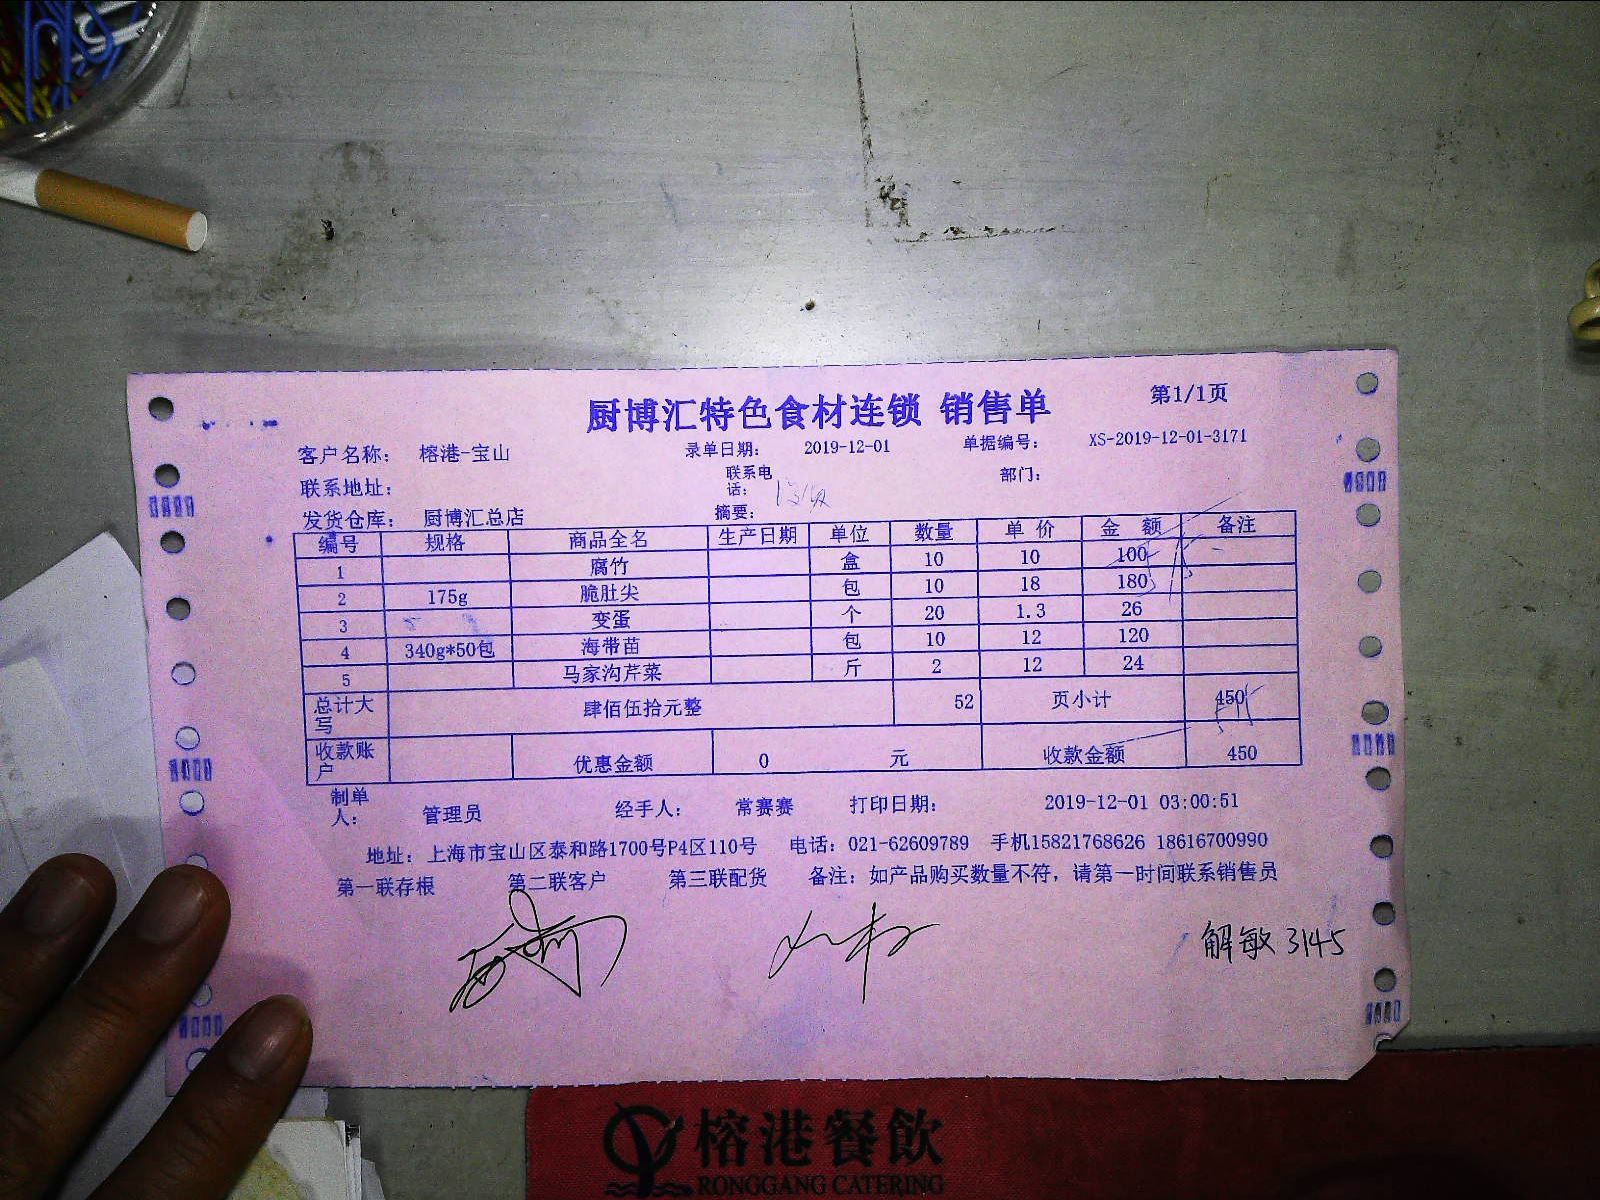 厨博汇特色食材连锁 销售单
第1/1页
客户名称： 榕港-宝山 录单日期： 2019-12-01 单据编号： XS-2019-12-01-3171
联系地址： 联系电话： 部门：
发货仓库： 厨博汇总店 摘要：
编号 规格 商品全名 生产日期 单位 数量 单 价 金 额 备注
1 腐竹 盒 10 10 100
2 175g 脆肚尖 包 10 18 180
3 变蛋 个 20 1.3 26
4 340g*50包 海带苗 包 10 12 120
5 马家沟芹菜 斤 2 12 24
总计大写 肆佰伍拾元整 52 页小计 450
收款账户 优惠金额 0 元 收款金额 450
制单人： 管理员 经手人： 常赛赛 打印日期： 2019-12-01 03:00:51
地址：上海市宝山区泰和路1700号P4区110号 电话：021-62609789 手机15821768626 18616700990
第一联存根 第二联客户 第三联配货 备注：如产品购买数量不符，请第一时间联系销售员
解敏 3145
榕港餐飲
RONGGANG CATERING